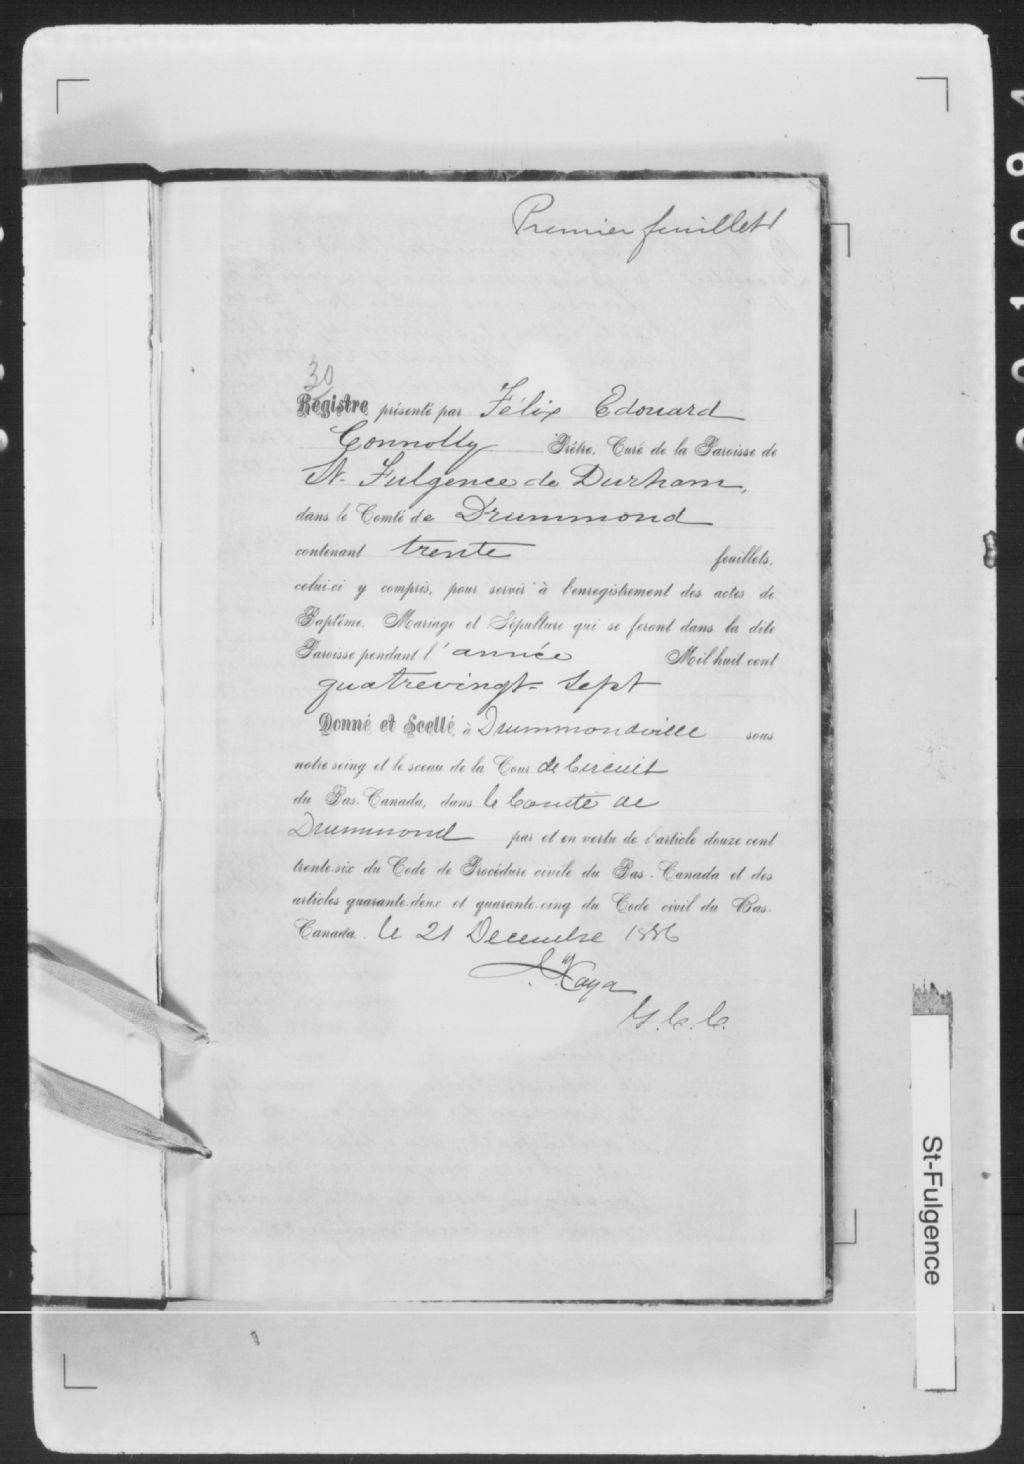 Premier feuillet
30
Registre présenté par Félix Edouard
Connolly Prêtre, Curé de la Paroisse de
St. Fulgence de Durham,
dans le Comté de Drummond
contenant trente feuillets,
celui-ci y compris, pour servir à l'enregistrement des actes de
Baptême, Mariage et Sépulture qui se feront dans la dite
Paroisse pendant l'année Mil huit cent
quatrevingt-sept
Donné et Scellé à Drummondville sous
notre seing et le sceau de la Cour de Circuit
du Bas-Canada, dans le Comté de
Drummond par et en vertu de l'article douze cent
trente-six du Code de Procédure civile du Bas-Canada et des
articles quarante-deux et quarante-cinq du Code civil du Bas-
Canada. le 21 Decembre 1886
G. C. C.
St-Fulgence